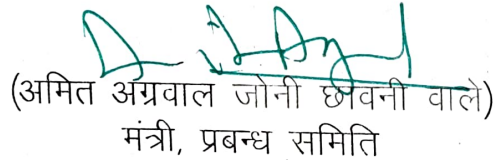 (अमित अग्रवाल जोनी छावनी वाले)
मंत्री, प्रबन्ध समिति